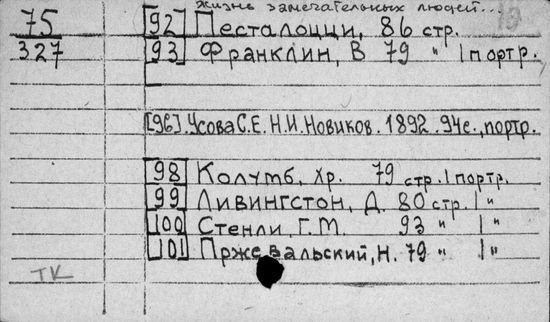 Жизнь замечательных людей...
12
75
[92] Песталоцци, 86 стр.
327
[93] Франклин, В 79 " 1 портр.
[96]. Усова С.Е. Н.И. Новиков. 1892. 94с., портр.
[98] Колумб, Хр. 79 стр. 1 портр.
[99] Ливингстон, Д. 80 стр. 1 "
[100] Стенли, Г.М. 93 " 1 "
[101] Пржевальский, Н. 79 " 1 "
ТК